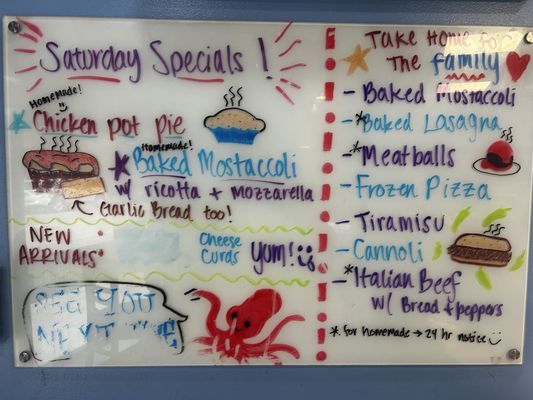 Saturday Specials !
Homemade!
Chicken pot pie
Homemade!
* Baked Mostaccoli
w/ ricotta + mozzarella
Garlic Bread too!
NEW
ARRIVALS
Cheese
Curds
Yum!
SEE YOU
NEXT
Take Home for
The family
- Baked Mostaccoli
- *Baked Lasagna
- *Meatballs
- Frozen Pizza
- Tiramisu
- Cannoli
- *Italian Beef
w/ Bread + peppers
* for homemade → 24 hr notice